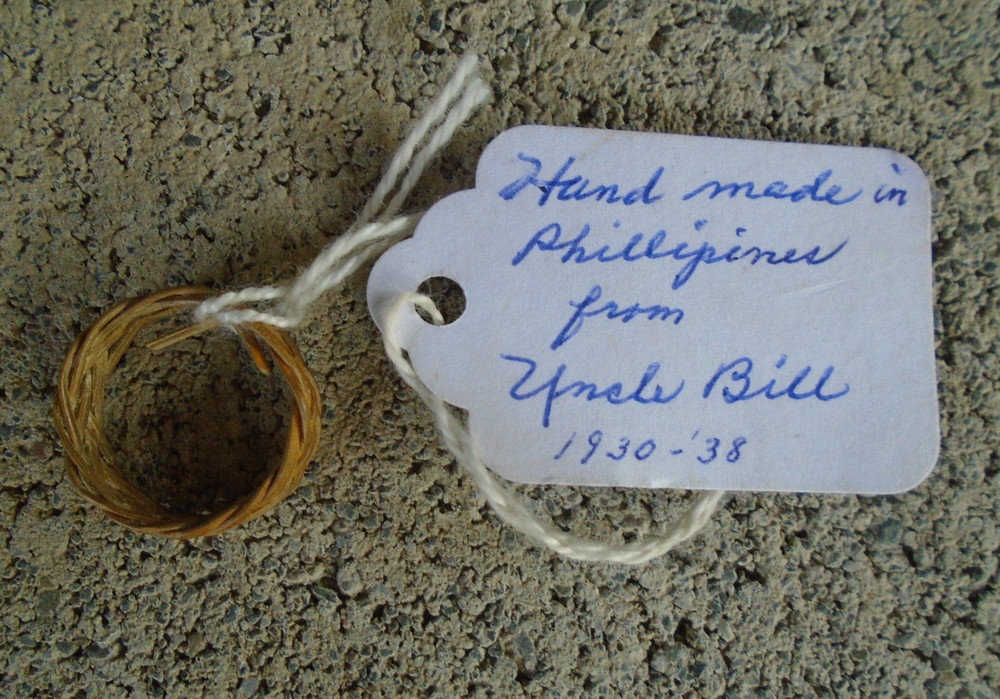 Hand made in
Phillipines
from
Uncle Bill
1930-'38